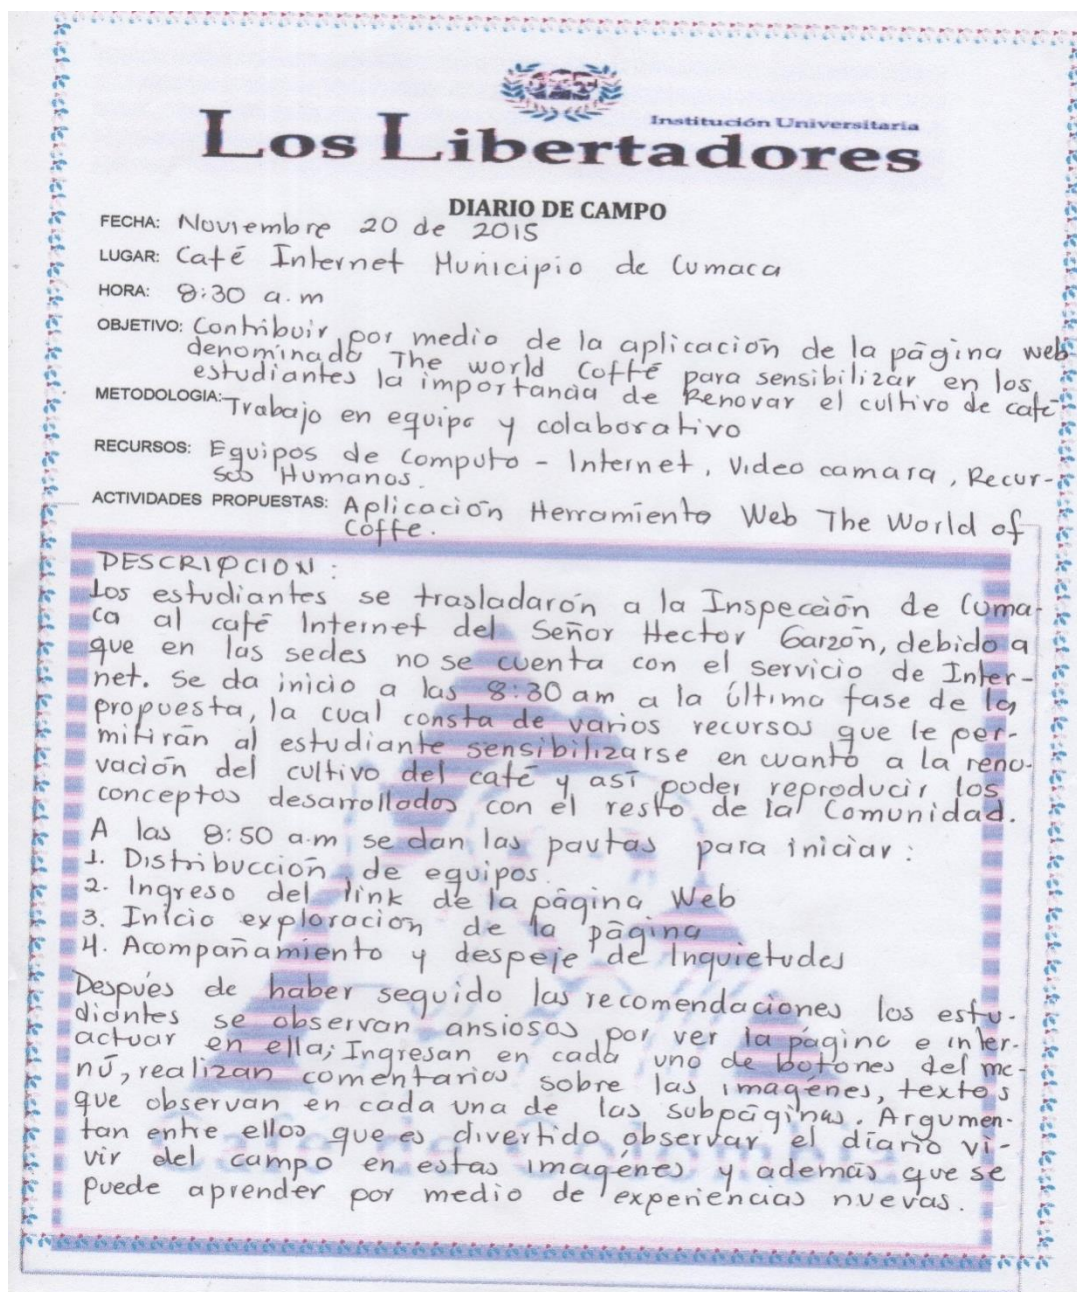 Institución Universitaria
Los Libertadores
DIARIO DE CAMPO
FECHA: Noviembre 20 de 2015
LUGAR: Café Internet Municipio de Cumaca
HORA: 8:30 a.m
OBJETIVO: Contribuir por medio de la aplicación de la página web
denominado The world Coffé para sensibilizar en los
estudiantes la importancia de Renovar el cultivo de café
METODOLOGIA: Trabajo en equipo y colaborativo
RECURSOS: Equipos de Computo - Internet, Video camara, Recur-
sos Humanos.
ACTIVIDADES PROPUESTAS: Aplicación Herramienta Web The World of
Coffe.
DESCRIPCION:
Los estudiantes se trasladarón a la Inspección de Cuma-
ca al café Internet del Señor Hector Garzón, debido a
que en las sedes no se cuenta con el servicio de Inter-
net. Se da inicio a las 8:30 am a la última fase de la
propuesta, la cual consta de varios recursos que le per-
mitirán al estudiante sensibilizarse en cuanto a la reno-
vación del cultivo del café y así poder reproducir los
conceptos desarrollados con el resto de la Comunidad.
A las 8:50 a.m se dan las pautas para iniciar:
1. Distribucción de equipos.
2. Ingreso del link de la página Web
3. Inicio exploración de la página
4. Acompañamiento y despeje de Inquietudes
Después de haber seguido las recomendaciones los estu-
diantes se observan ansiosos por ver la página e inter-
actuar en ella; Ingresan en cada uno de botones del me-
nú, realizan comentarios sobre las imagénes, textos
que observan en cada una de las subpáginas. Argumen-
tan entre ellos que es divertido observar el diario vi-
vir del campo en estas imagénes y además que se
puede aprender por medio de experiencias nuevas.